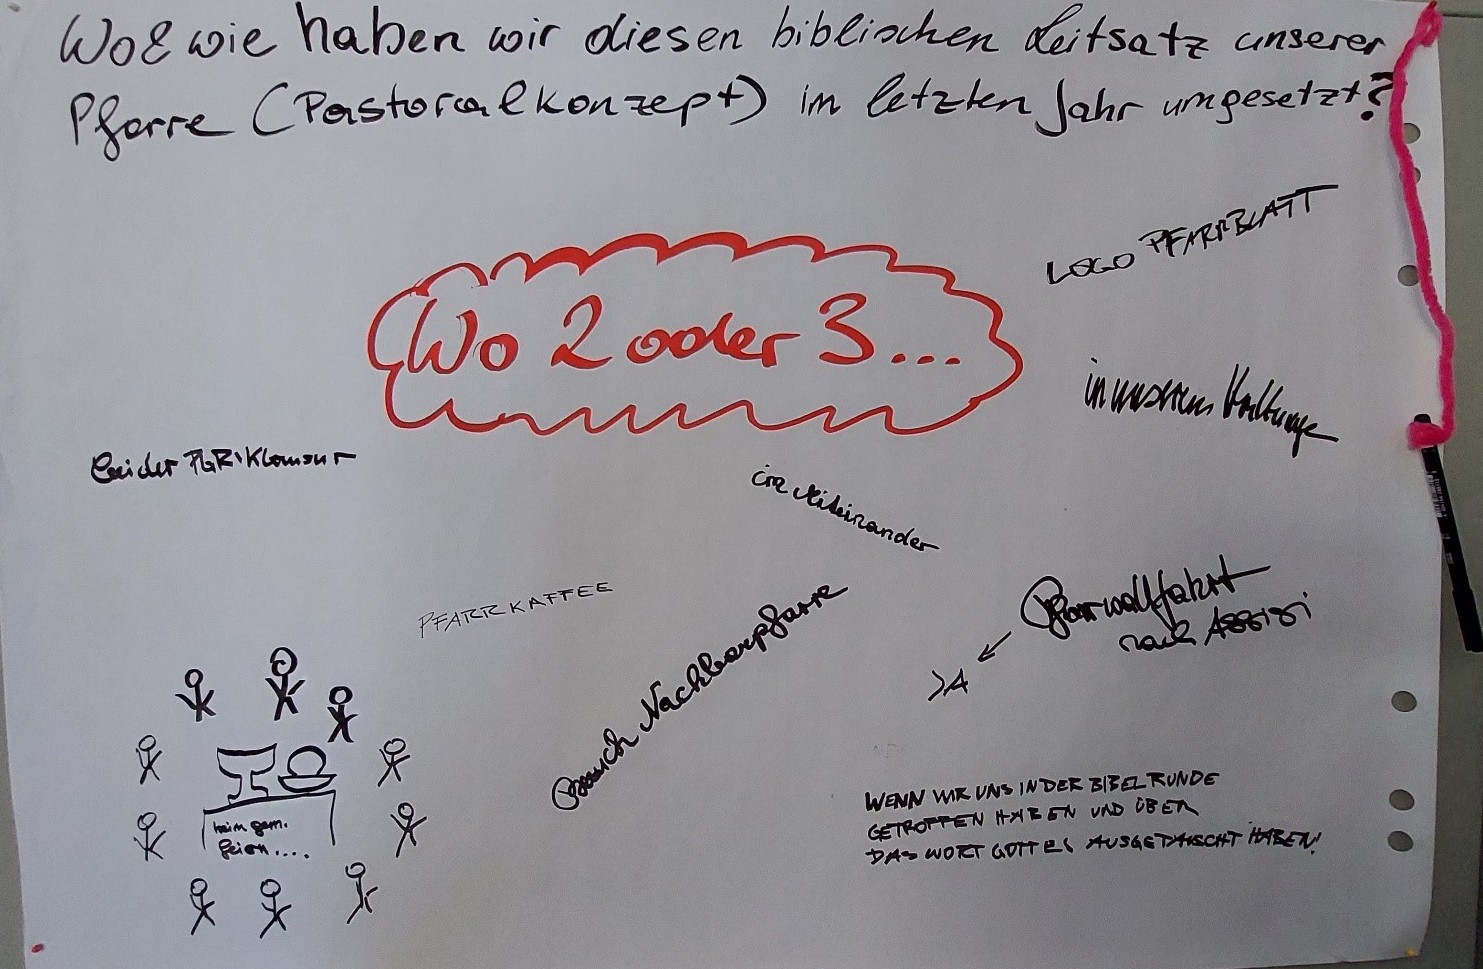 Wo & wie haben wir diesen biblischen Leitsatz unserer
Pfarre (Pastoralkonzept) im letzten Jahr umgesetzt?
LOGO PFARRBLATT
Wo 2 oder 3...
in unseren Haltunge
bei der PGR-Klausur
im Miteinander
PFARRKAFFEE
Besuch Nachbarpfarre
Pfarrwallfahrt
nach Assisi
beim gem.
feiern....
WENN WIR UNS IN DER BIBELRUNDE
GETROFFEN HABEN UND ÜBER
DAS WORT GOTTES AUSGETAUSCHT HABEN!